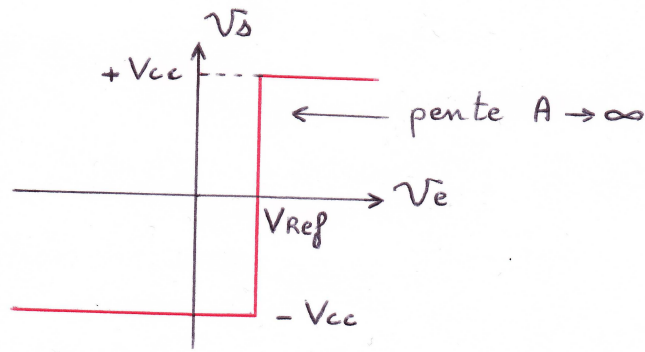 Vs
+ Vcc
pente A → ∞
Ve
VRef
- Vcc